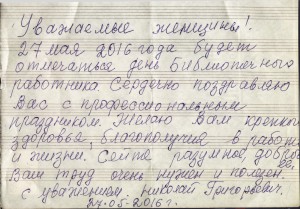 Уважаемые женщины!
27 мая 2016 года будет
отмечаться день библиотечного
работника Сердечно поздравляю
Вас с профессиональным
праздником. Желаю Вам крепкого
здоровья, благополучия в работе
и жизни. Сейте разумное, доброе
Ваш труд очень нужен и полезен.
с уважением. николай Григорьевич.
24.05-2016г.